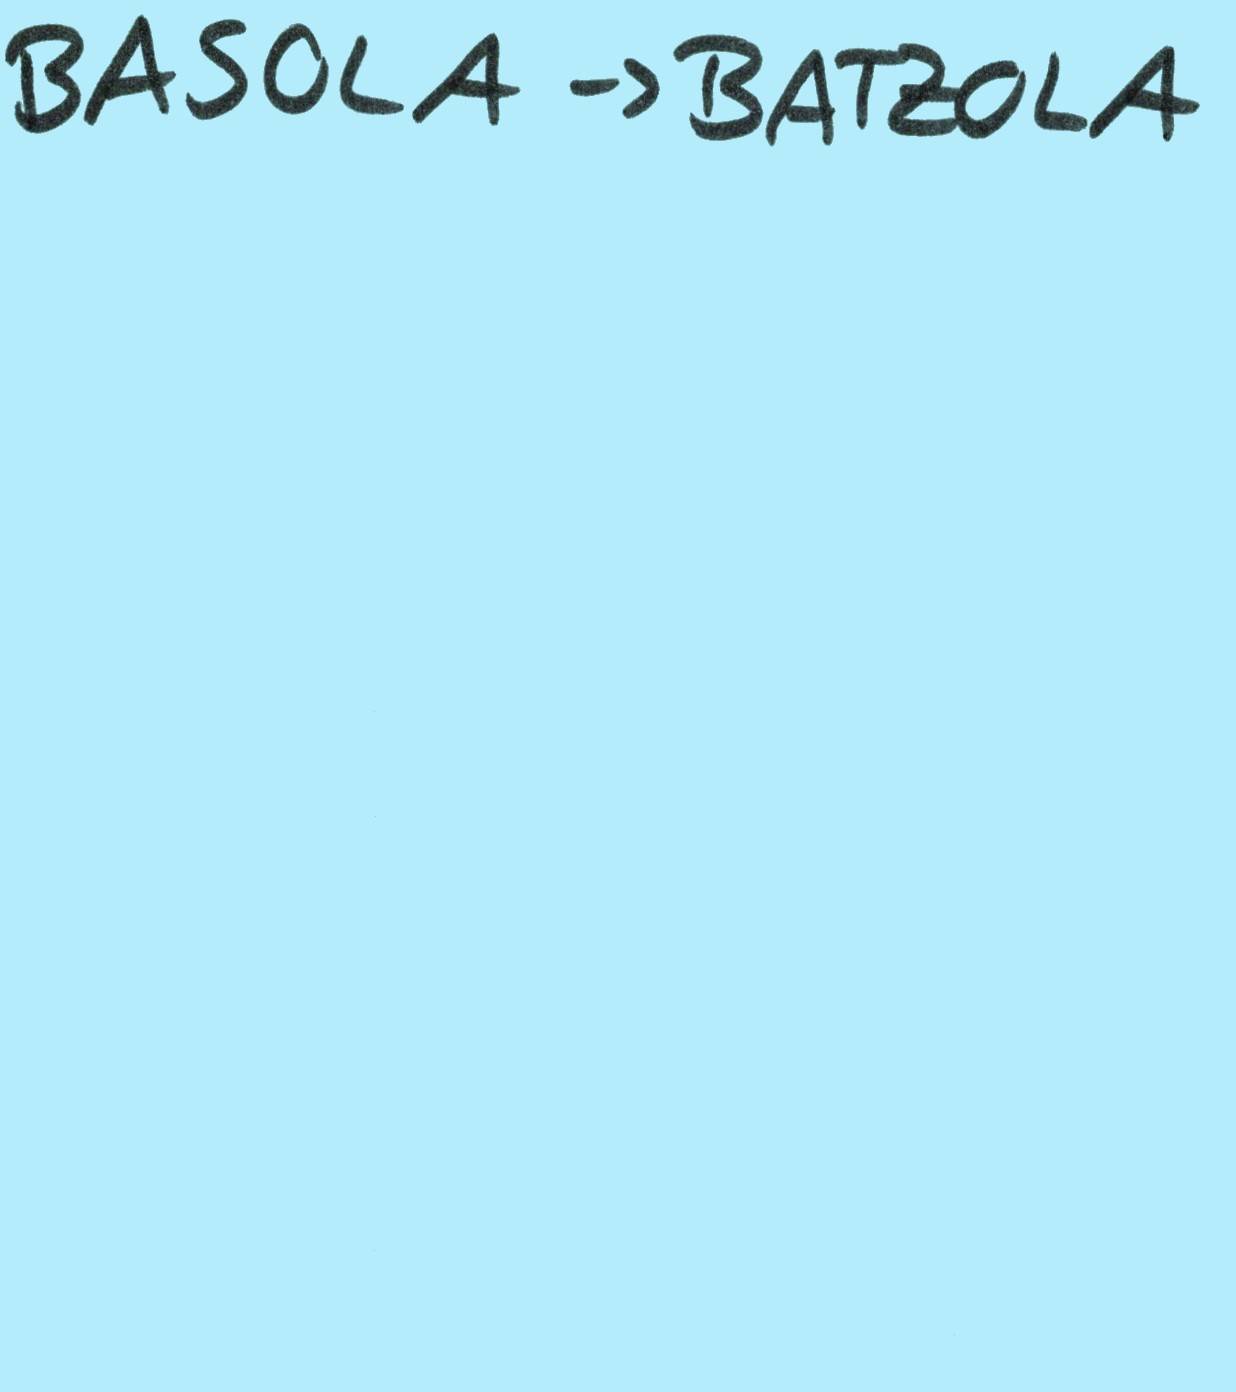 BASOLA -> BATZOLA